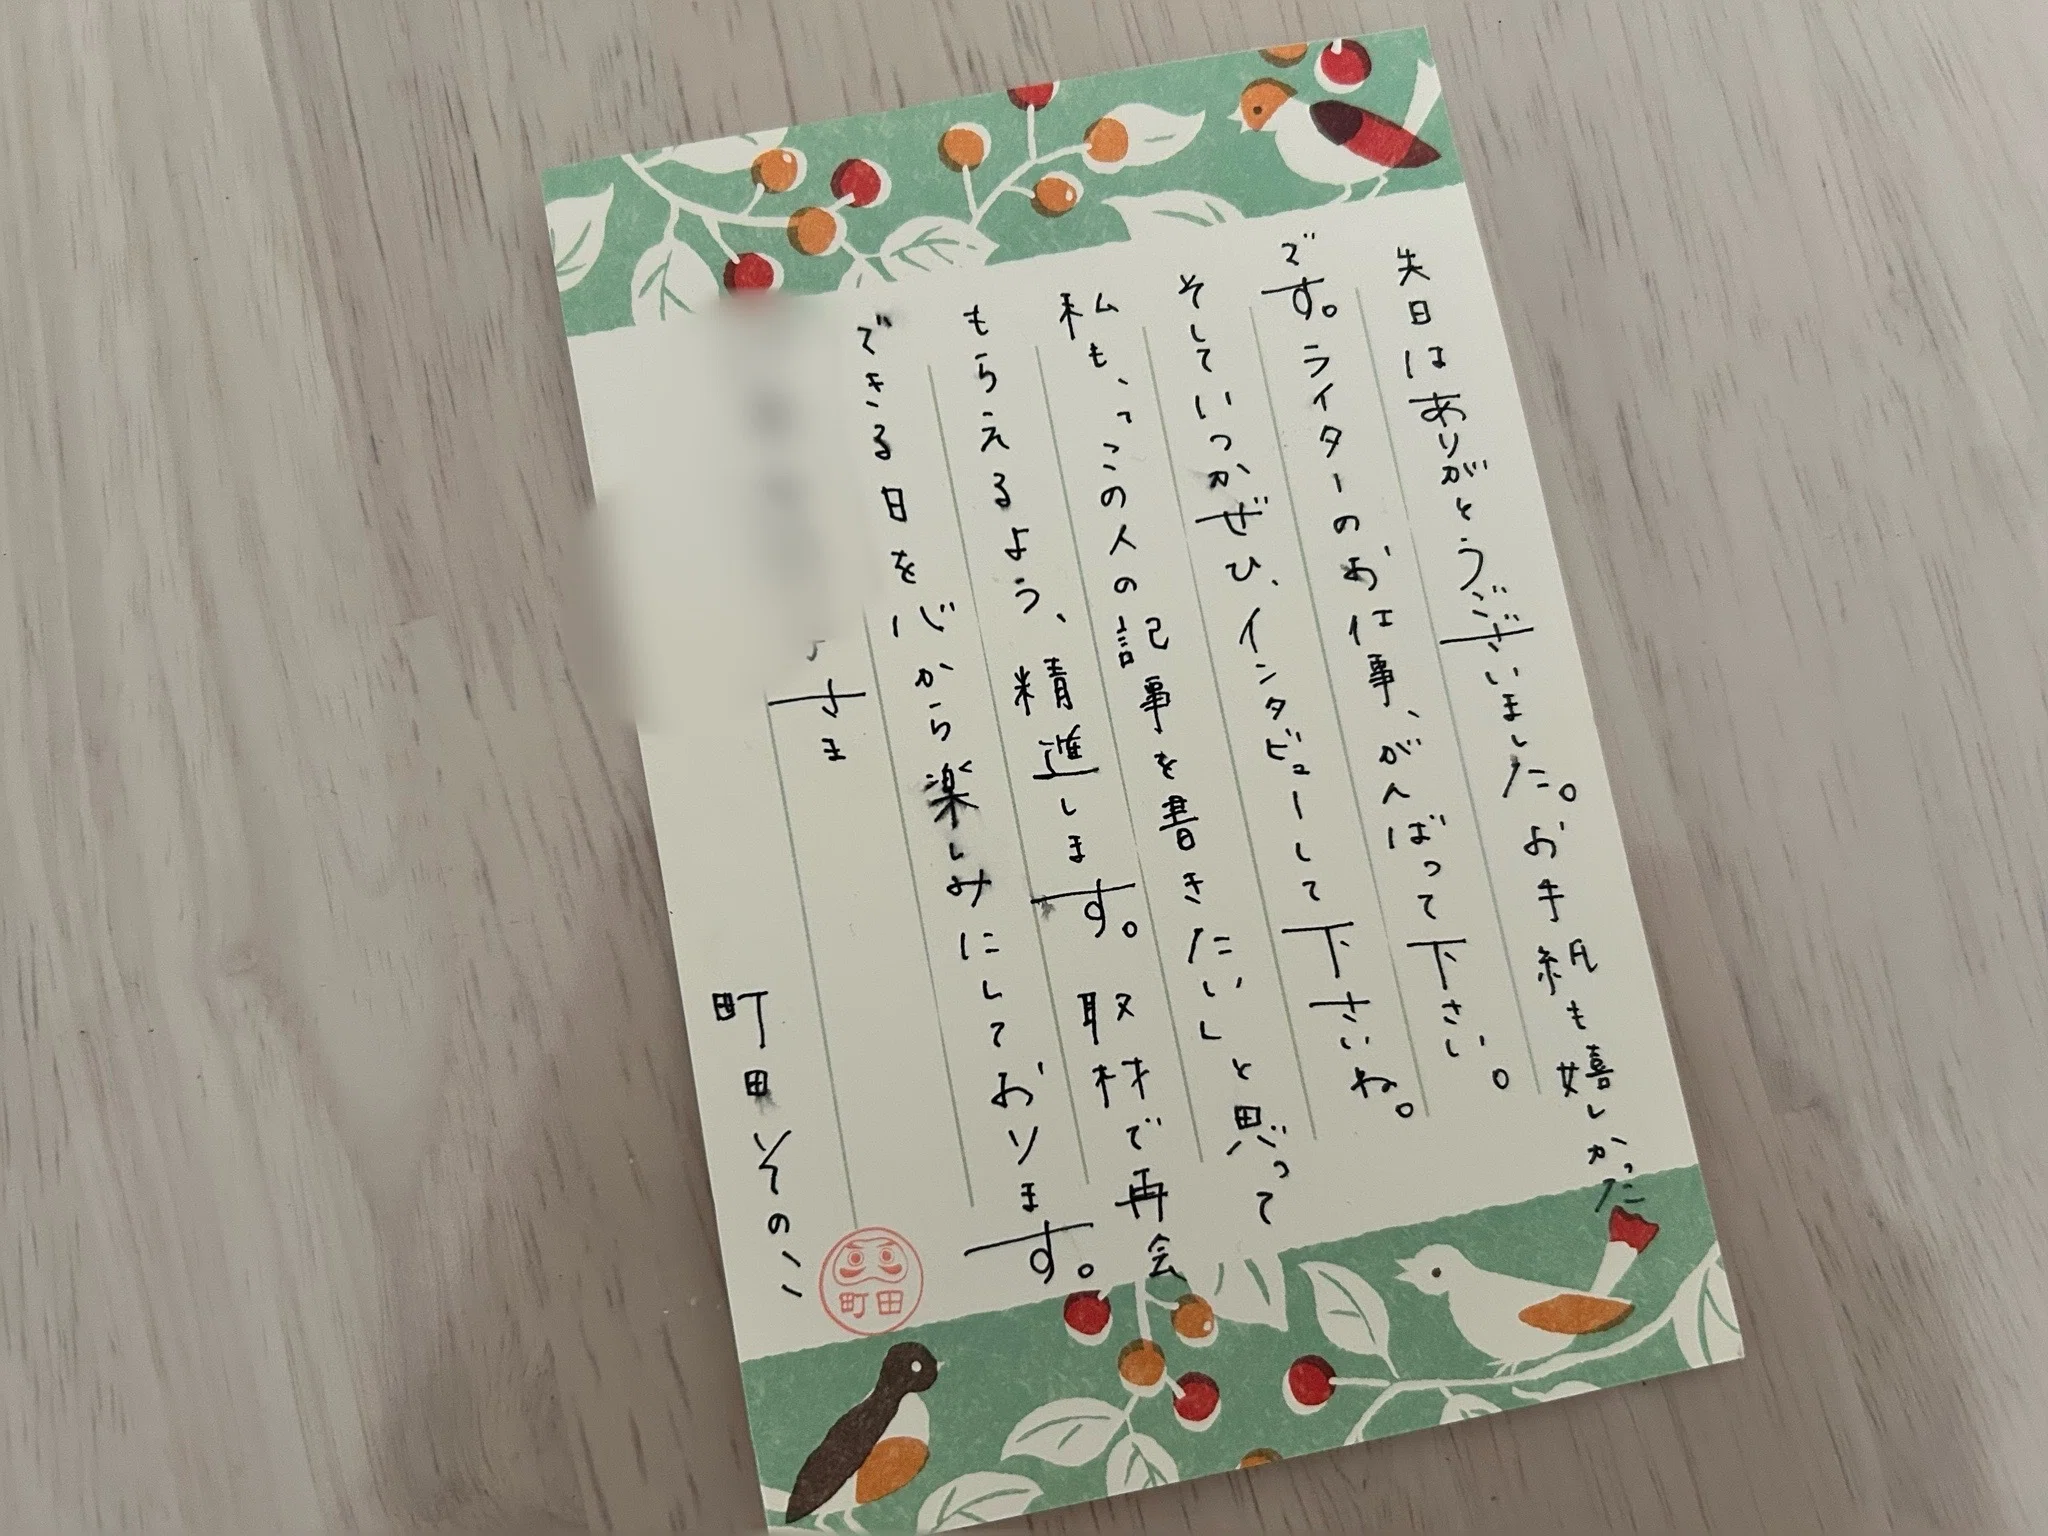 先日はありがとうございました。お手紙も嬉しかった
です。ライターのお仕事、がんばって下さい。
そしていつかぜひ、インタビューして下さいね。
私も、「この人の記事を書きたい」と思って
もらえるよう、精進します。取材で再会
できる日を心から楽しみにしております。
さま
町田そのこ
町田